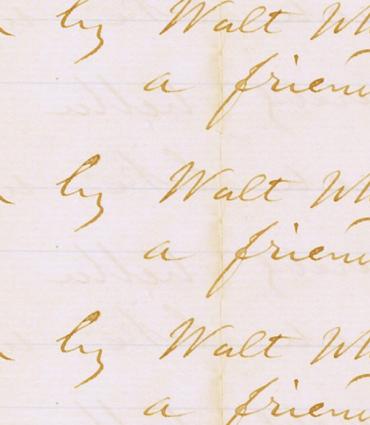 by Walt Wh
a frien
by Walt Wh
a frien
by Walt Wh
a frien